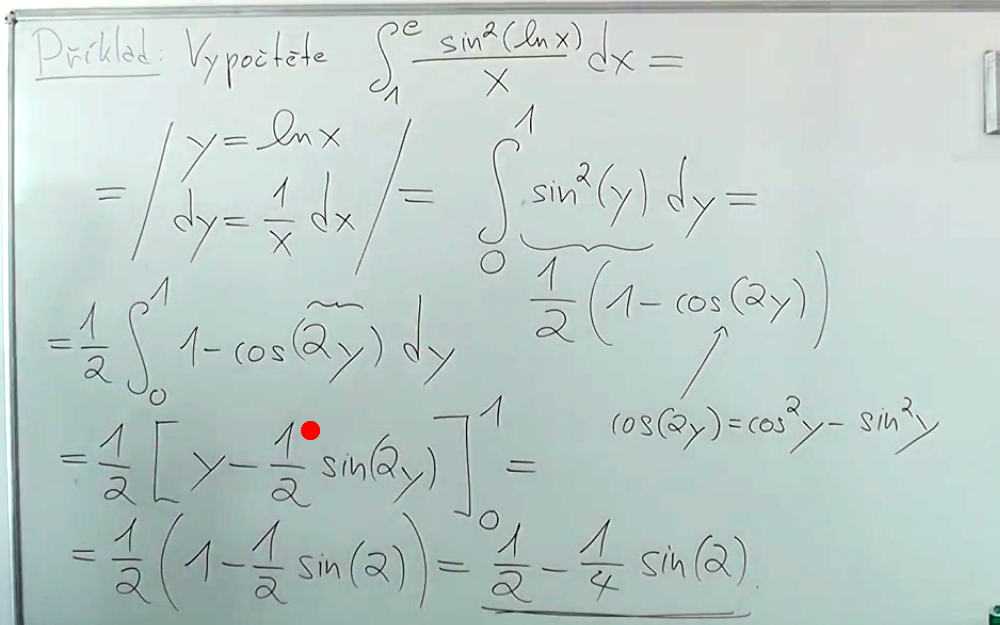 Příklad: Vypočtěte ∫₁ᵉ sin²(ln x)/x dx =
= | y = ln x
dy = 1/x dx | = ∫₀¹ sin²(y) dy =
1/2 (1 - cos(2y))
= 1/2 ∫₀¹ 1 - cos(2y) dy
cos(2y) = cos²y - sin²y
= 1/2 [ y - 1/2 sin(2y) ]₀¹ =
= 1/2 (1 - 1/2 sin(2)) = 1/2 - 1/4 sin(2).